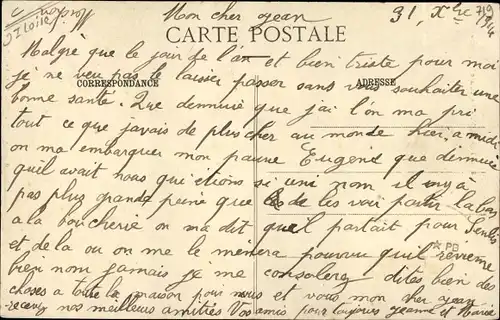 Mon cher Jean 31 Xbre
CARTE POSTALE
Malgré que le jour de l'an et bien triste pour moi
je ne veu pas le laisser passer sans vous souhaiter une
CORRESPONDANCE ADRESSE
bonne santé. Que que j'ai l'on ma pri
tout ce que javais de plus cher au monde hier a midi
on ma embarquer mon pauve Eugene que
quil avait nous qui etions si uni nom il ny a
pas plus grande peine que de les voir partir labas
a la boucherie on ma dit quel partait pour Senlis
et de la ou on me le mènera pourvu quil revienne
bien nom jamais je me consolerez dites bien des
PB
choses a toute la maison pour nous et vous mon cher Jean
recevez nos meilleurs amitiés Vos amis pour toujours Jeanne et